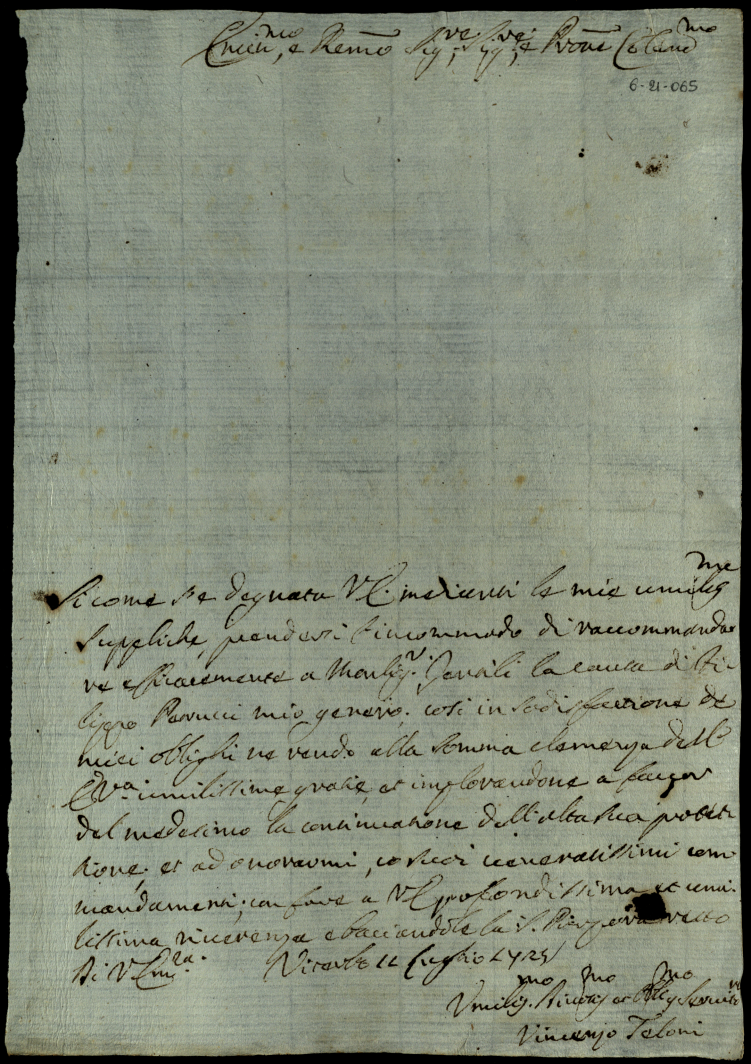 Emin.mo, e Remo Sig.re, Sig.re, e Prone Colend.mo
6-21-065
Sicome s'e degnata V.E. medianti le mie umilis.me
suppliche, prendersi l'incommodo di raccommanda=
re efficacemente a Monsig.r la causa di Fi-
lippo Parucci mio genero; così in sodisfazione de
miei oblighi ne rendo alla somma clemenza dell'
E.V.a umilissime grazie, et implorandone a favor
del medesimo la continuazione dell'alta sua protet-
tione, et ad onorarmi, co suoi veneratissimi com-
mandamenti, con fare a V.E. profondissima, et umi-
lissima riverenza e baciandole la S. resto
Di V. Em.za Viterbo 11 Luglio 1725
Umilis.mo Divotis.mo et Oblig.mo Servit.re
Vincenzo Teloni